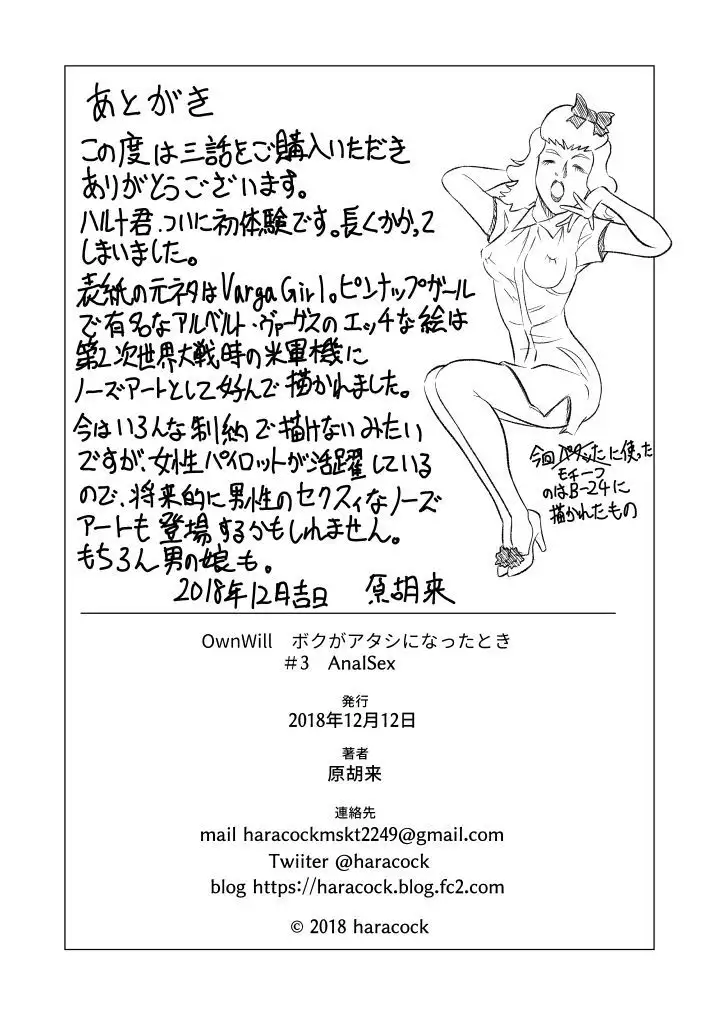 あとがき
この度は三話をご購入いただき
ありがとうございます。
ハルト君、ついに初体験です。長くかかって
しまいました。
表紙の元ネタはVarga Girl。ピンナップガール
で有名なアルベルト・ヴァーゲスのエッチな絵は
第2次世界大戦時の米軍機に
ノーズアートとして好んで描かれました。
今はいろんな制約で描けないみたい
ですが、女性パイロットが活躍している
ので、将来的に男性のセクスィなノーズ
アートも登場するかもしれません。
もちろん男の娘も。
2018年12月吉日 原胡来
今回に使った
モチーフ
のはB-24に
描かれたもの
OwnWill ボクがアタシになったとき
#3 AnalSex
発行
2018年12月12日
著者
原胡来
連絡先
mail haracockmskt2249@gmail.com
Twiiter @haracock
blog https://haracock.blog.fc2.com
© 2018 haracock